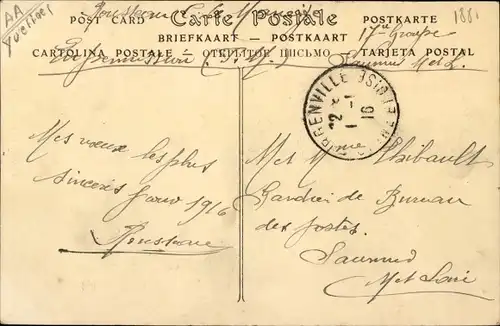 AA
Yvelines
1881
Carte Postale
POST CARD
POSTKARTE
BRIEFKAART — POSTKAART
CARTOLINA POSTALE — ОТКРЫТОЕ ПИСЬМО — TARJETA POSTAL
17e Groupe
Saumur M et L.
22
1-1
16
Mes vœux les plus
sincères pour 1916
Rousseau
M et Mme Thibault
Gardien de Bureau
des postes.
Saumur
M et Loire